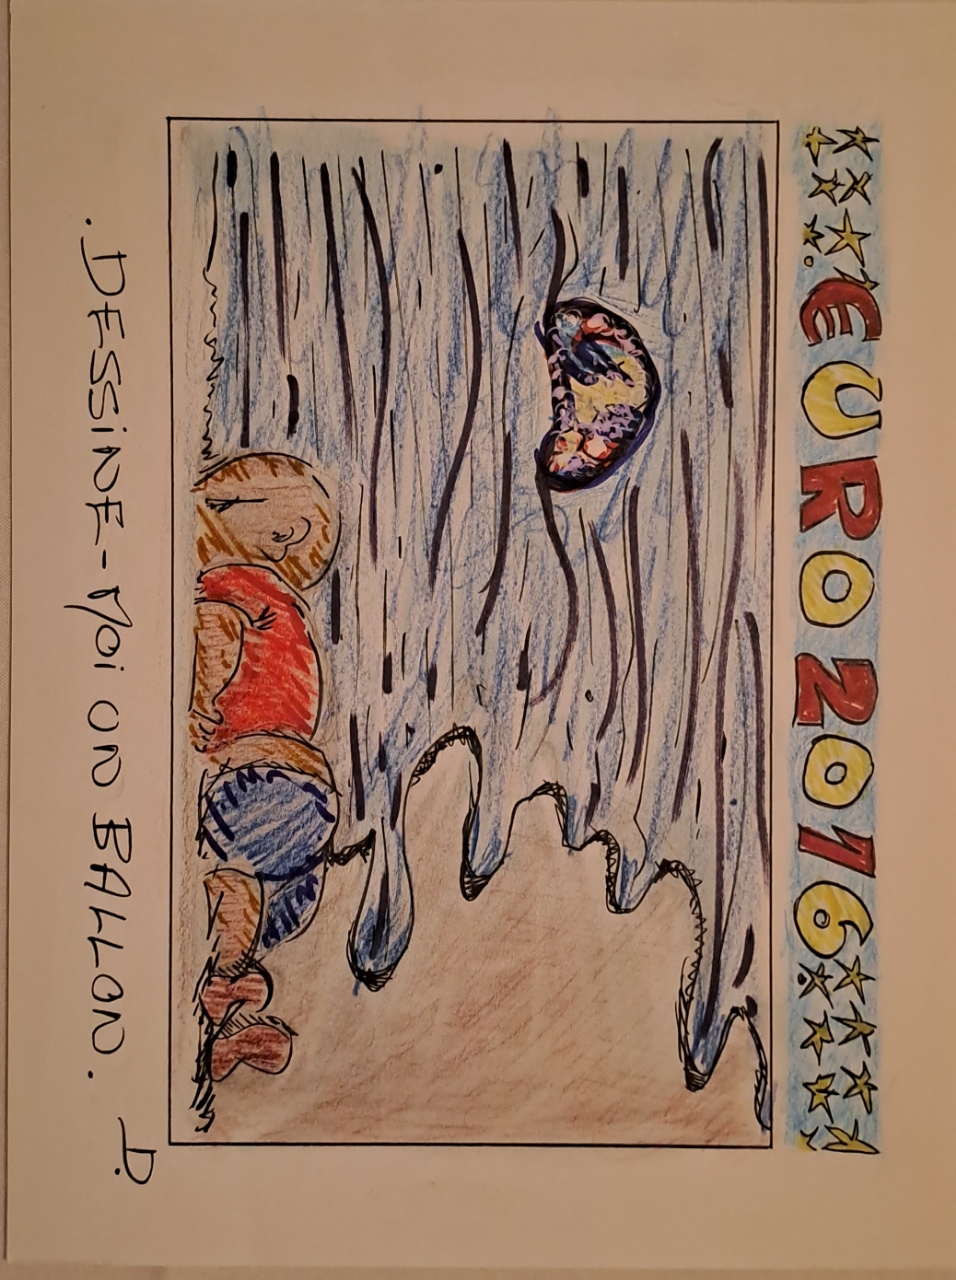 EURO 2016
.DESSINE-MOI UN BALLON.
D.